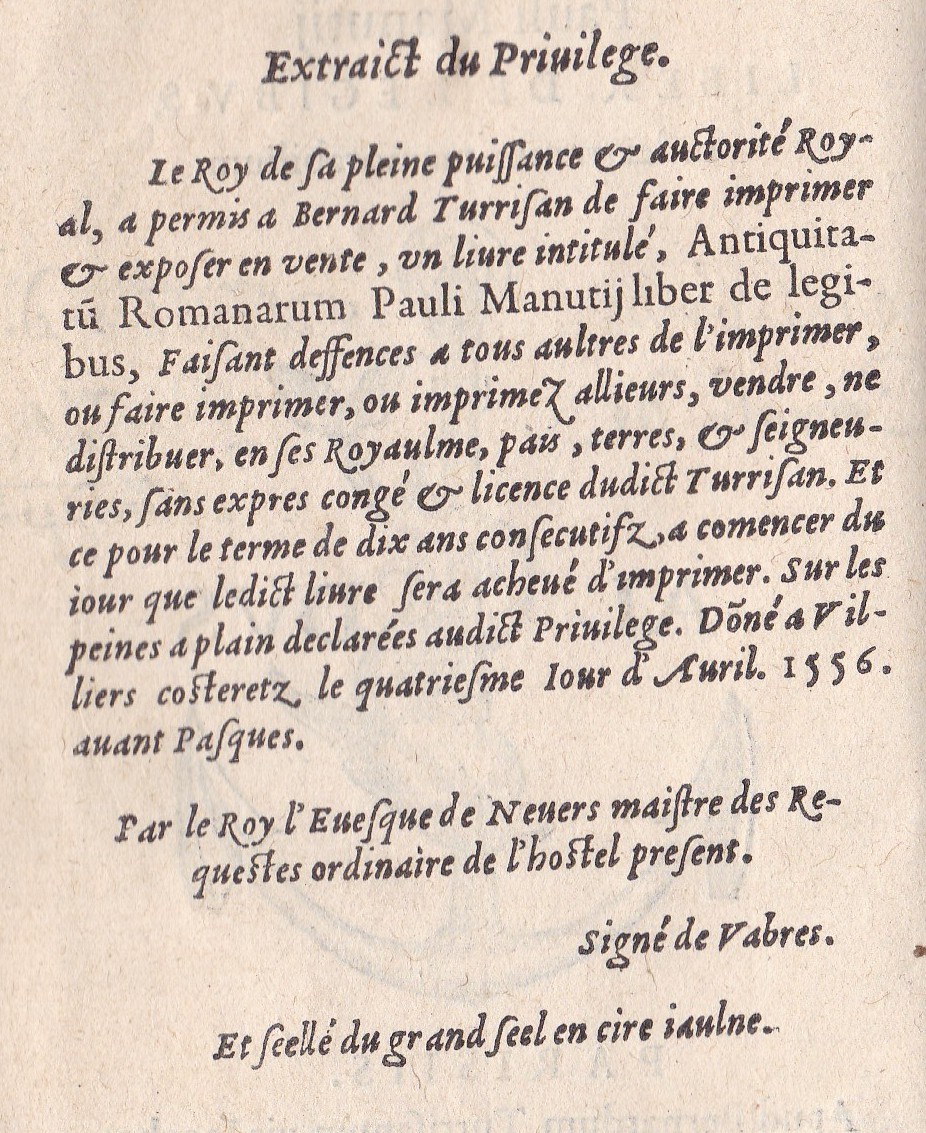 Extraict du Priuilege.
Le Roy de ſa pleine puiſſance & auctorité Roy-
al, a permis a Bernard Turriſan de faire imprimer
& expoſer en vente , vn liure intitulé, Antiquita-
tū Romanarum Pauli Manutij liber de legi-
bus, Faiſant deffences a tous aultres de l'imprimer,
ou faire imprimer, ou imprimez allieurs, vendre , ne
diſtribuer, en ſes Royaulme, païs , terres, & ſeigneu-
ries, ſans expres congé & licence dudict Turriſan. Et
ce pour le terme de dix ans conſecutifz, a comencer du
iour que ledict liure ſera acheué d'imprimer. Sur les
peines a plain declarées audict Priuilege. Dōné a Vil-
liers coſteretz le quatrieſme Iour d'Auril. 1556.
auant Paſques.
Par le Roy l'Eueſque de Neuers maiſtre des Re-
queſtes ordinaire de l'hoſtel preſent.
Signé de Vabres.
Et ſcellé du grand ſeel en cire iaulne.